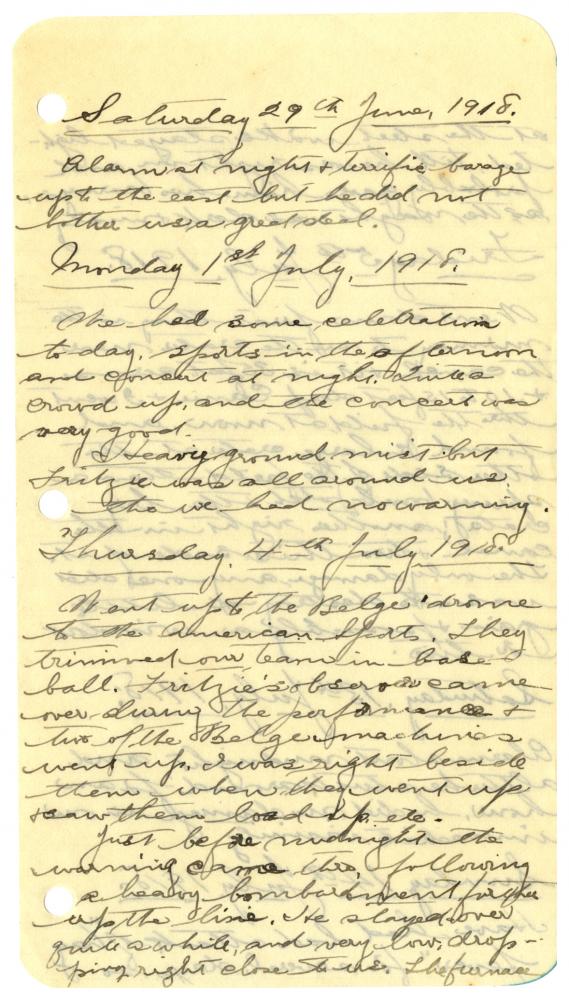 Saturday 29th June, 1918.
Alarm at night & terrific barage
up to the east but he did not
bother us a great deal.
Monday 1st July, 1918.
We had some celebration
to-day, sports in the afternoon
and concert at night. Quite a
crowd up, and the concert was
very good.
Heavy ground mist but
Fritzie was all around us
tho we had no warning.
Thursday, 4th July, 1918.
Went up to the Belge 'drome
to the American Sports. They
trimmed our team in base
ball. Fritzie's observer came
over during the performance &
two of the Belge machines
went up. I was right beside
them when they went up
& saw them load up, etc.
Just before midnight the
warning came thro, following
a heavy bombardment further
up the line. He stayed over
quite a while, and very low, drop-
ping right close to us. The furnace